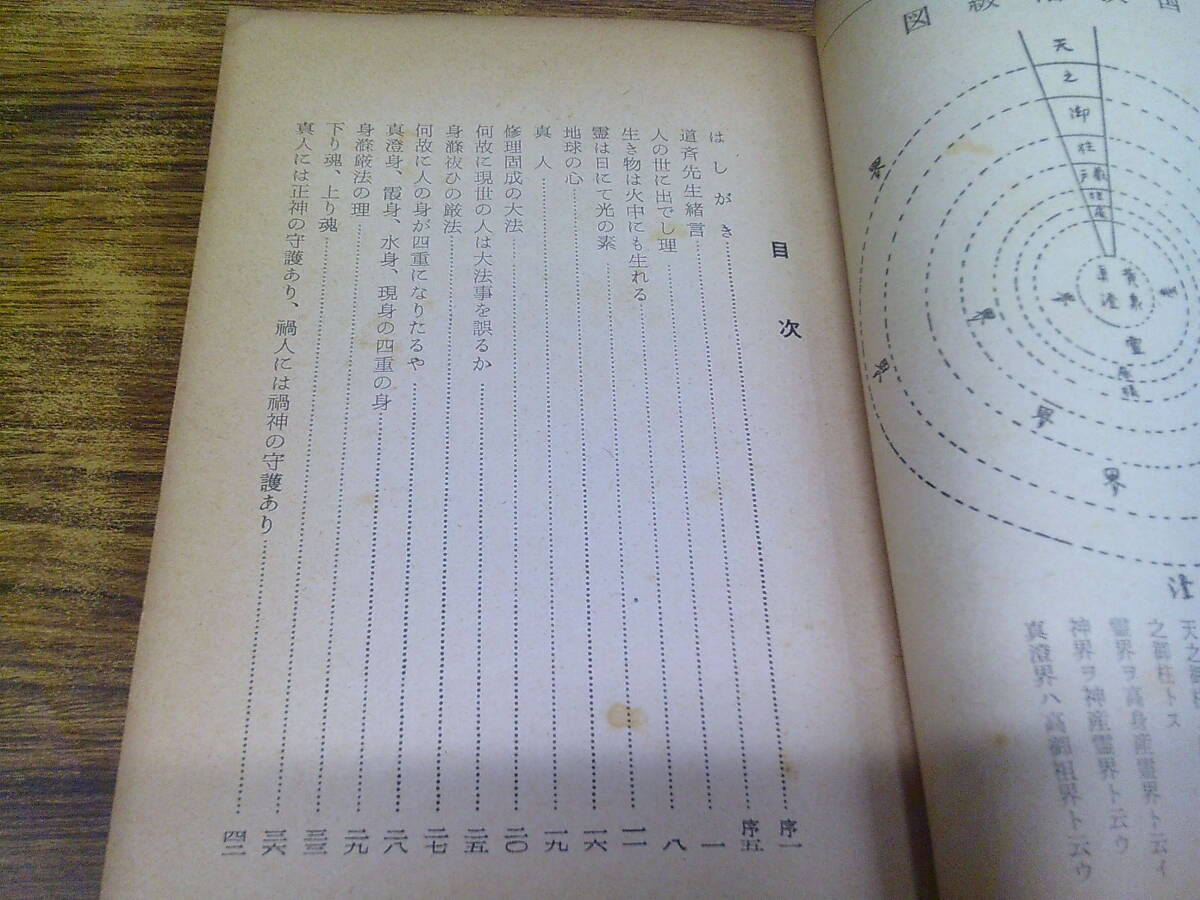 図 級
天之御柱
真澄
黄泉
霊
界
界
界
界
界
澄
之御柱トス
霊界ヲ高身産霊界ト云イ
神界ヲ神産霊界ト云ウ
真澄界ハ高御祖界ト云ウ
目次
はしがき 序一
道斉先生緒言 序五
人の世に出でし理 一
生き物は火中にも生れる 八
霊は日にて光の素 一一
地球の心 一六
真人 一九
修理固成の大法 二〇
何故に現世の人は大法事を誤るか 二五
身滌祓ひの厳法 二七
何故に人の身が四重になりたるや 二八
真澄身、霞身、水身、現身の四重の身 二九
身滌厳法の理 三三
下り魂、上り魂 三六
真人には正神の守護あり、禍人には禍神の守護あり 四二